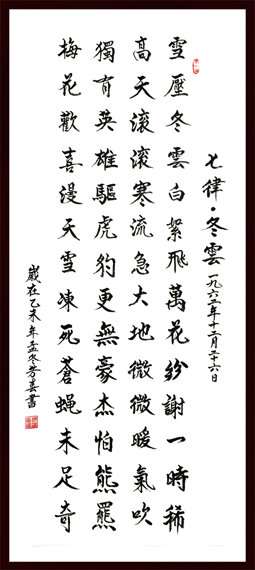 七律·冬雲 一九六二年十二月二十六日
雪壓冬雲白絮飛萬花紛謝一時稀
高天滾滾寒流急大地微微暖氣吹
獨有英雄驅虎豹更無豪杰怕熊羆
梅花歡喜漫天雪凍死蒼蝇未足奇
歲在乙未年孟冬芳喜書